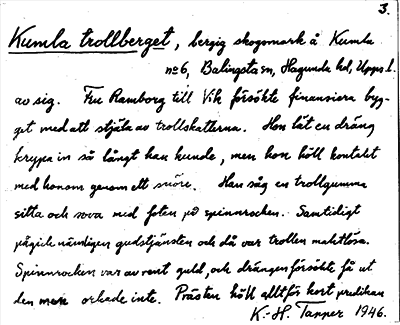 3.
Kumla trollberget, bergig skogsmark å Kumla
no 6, Balingsta sn, Hagunda hd, Upps. l.
av sig. Fru Ramborg till Vik försökte finansiera byg-
get med att stjäla av trollskatterna. Hon lät en dräng
krypa in så långt han kunde, men hon höll kontakt
med honom genom ett snöre. Han såg en trollgumma
sitta och sova med foten på spinnrocken. Samtidigt
pågick nämligen gudstjänsten och då var trollen maktlösa.
Spinnrocken var av rent guld, och drängen försökte få ut
den men orkade inte. Prästen höll alltför kort predikan
K.-H. Tapper 1946.